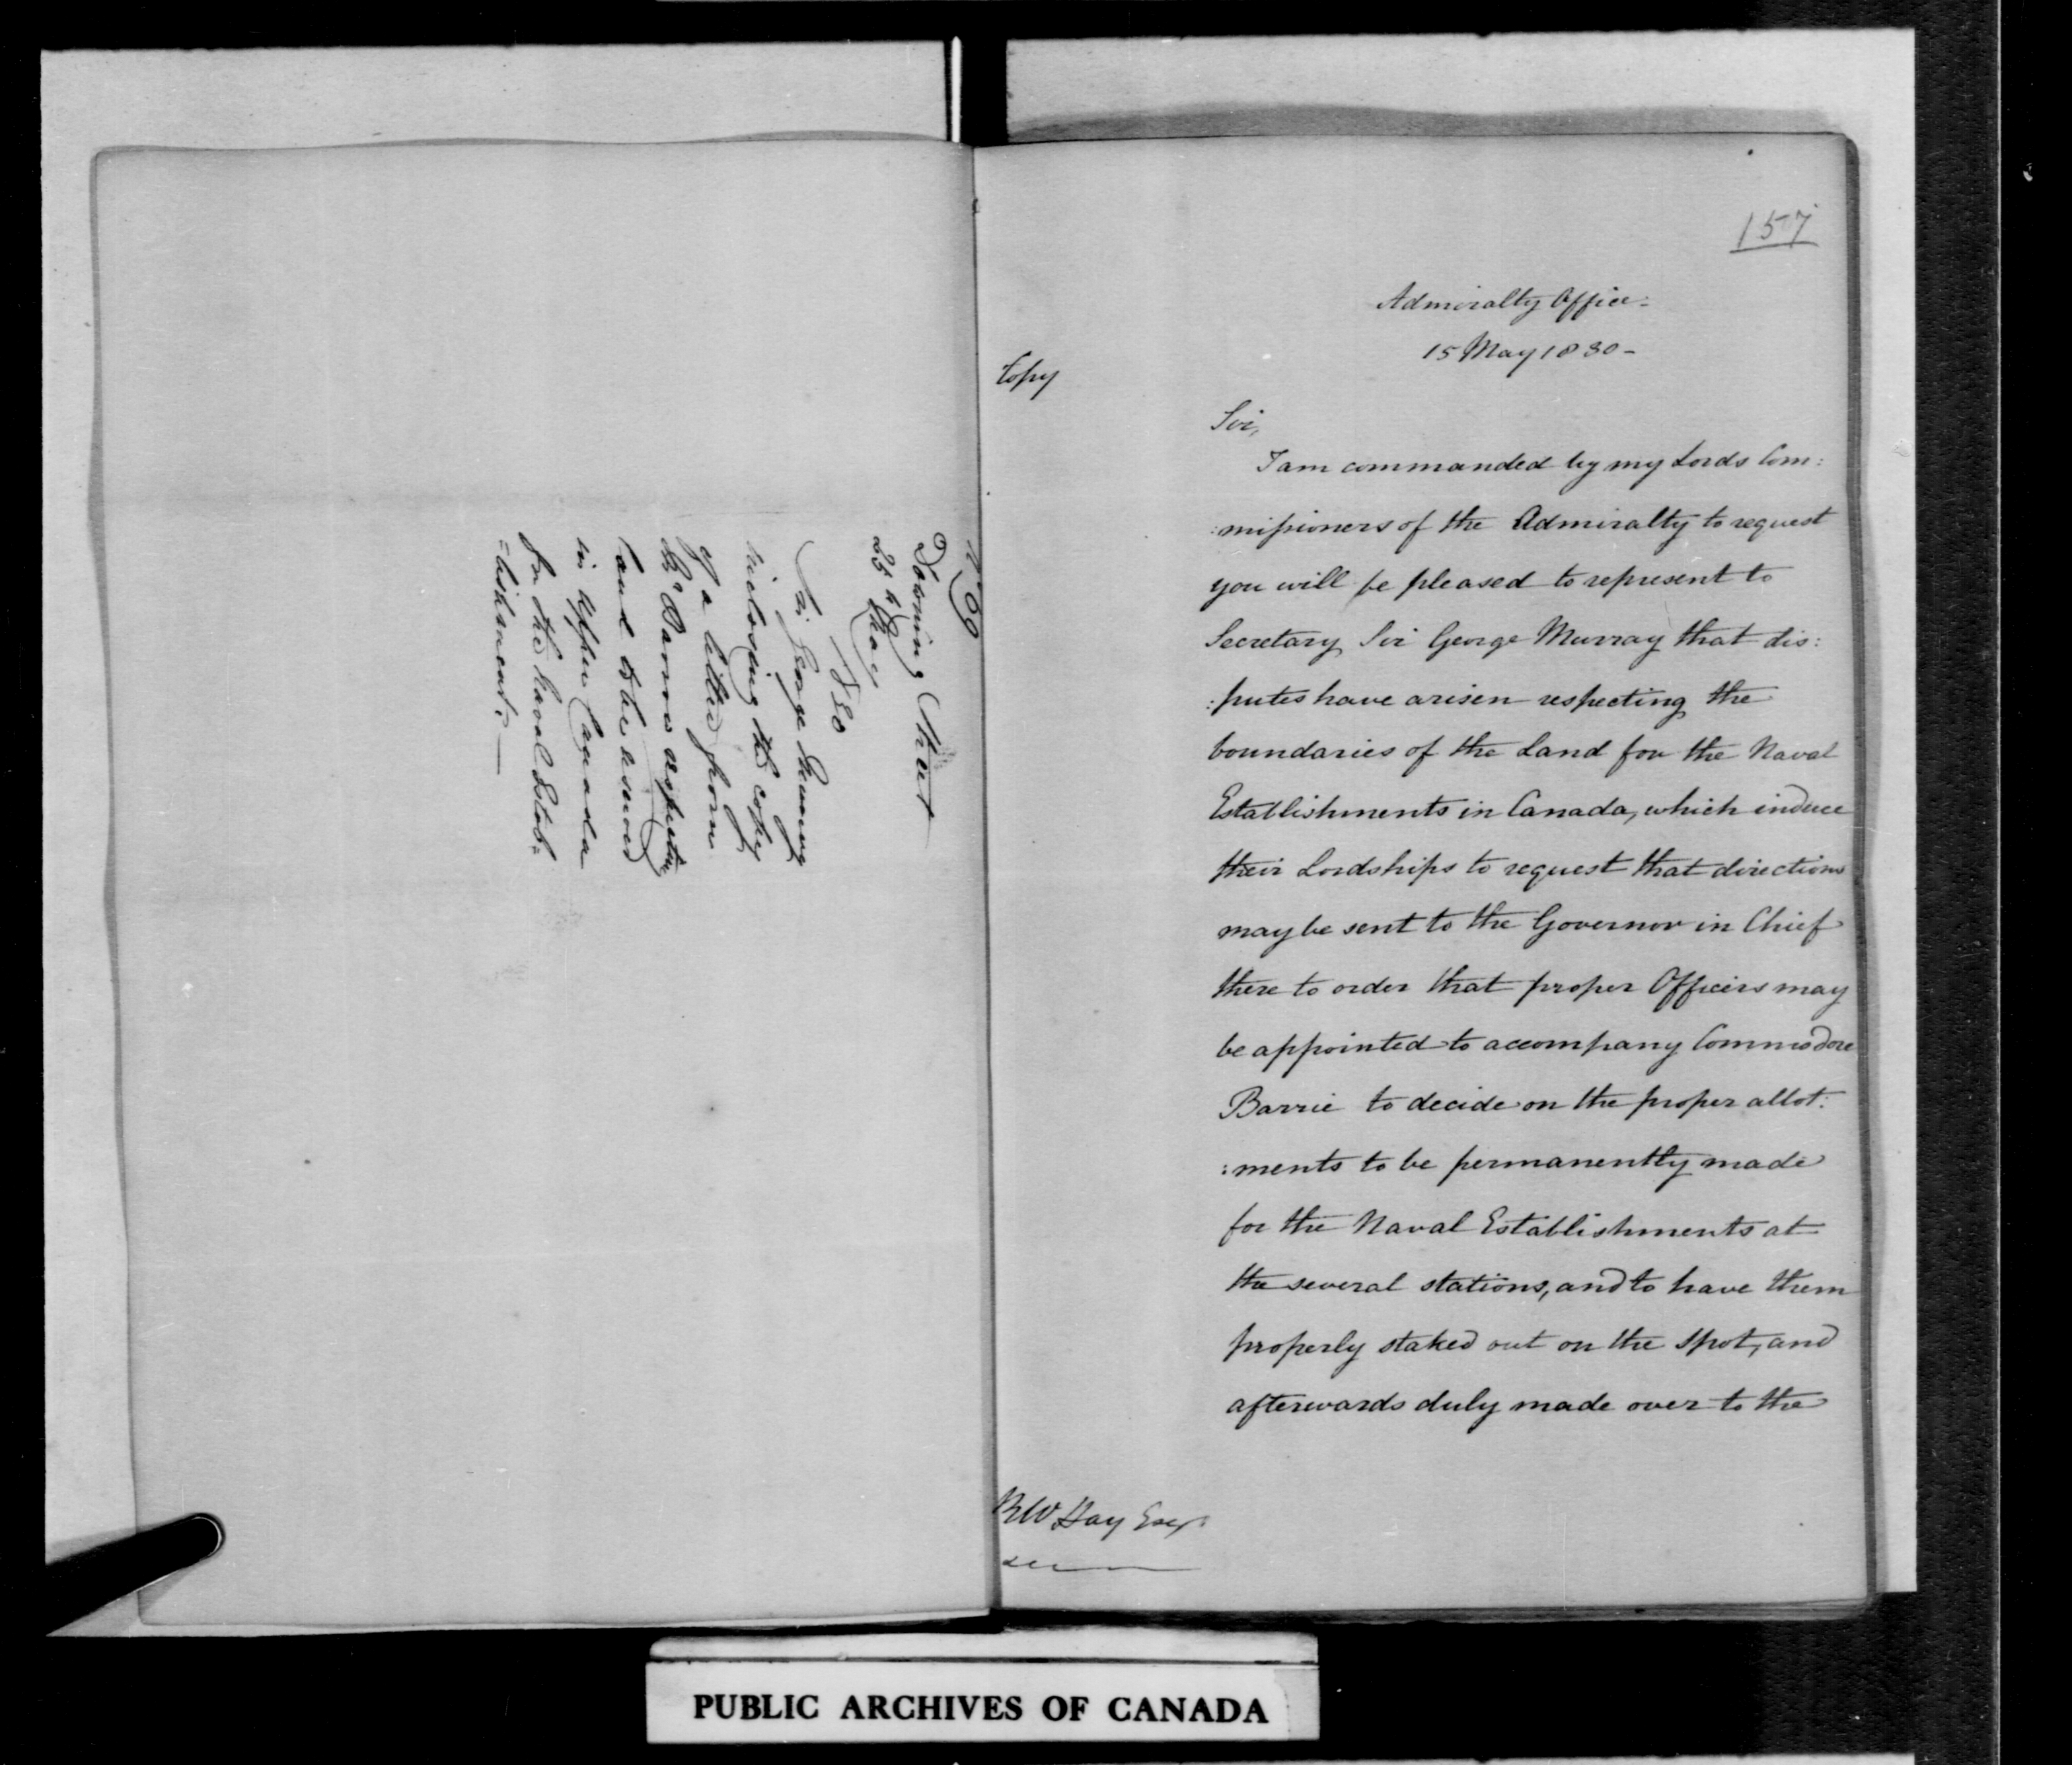 No 69
Downing Street
25th May
1830
Sir George Murray
inclosing the copy
of a letter from
Mr Barrow respecting
Land to be reserved
in Upper Canada
for the Naval Estab=
=lishment.
157
Admiralty Office.
15 May 1830
Copy
Sir,
I am commanded by my Lords Com:
:missioners of the Admiralty to request
you will be pleased to represent to
Secretary Sir George Murray that dis:
:putes have arisen respecting the
boundaries of the Land for the Naval
Establishments in Canada, which induce
their Lordships to request that directions
may be sent to the Governor in Chief
there to order that proper Officers may
be appointed to accompany Commodore
Barrie to decide on the proper allot:
:ments to be permanently made
for the Naval Establishments at
the several stations, and to have them
properly staked out on the spot, and
afterwards duly made over to the
RW Hay Esqr
PUBLIC ARCHIVES OF CANADA